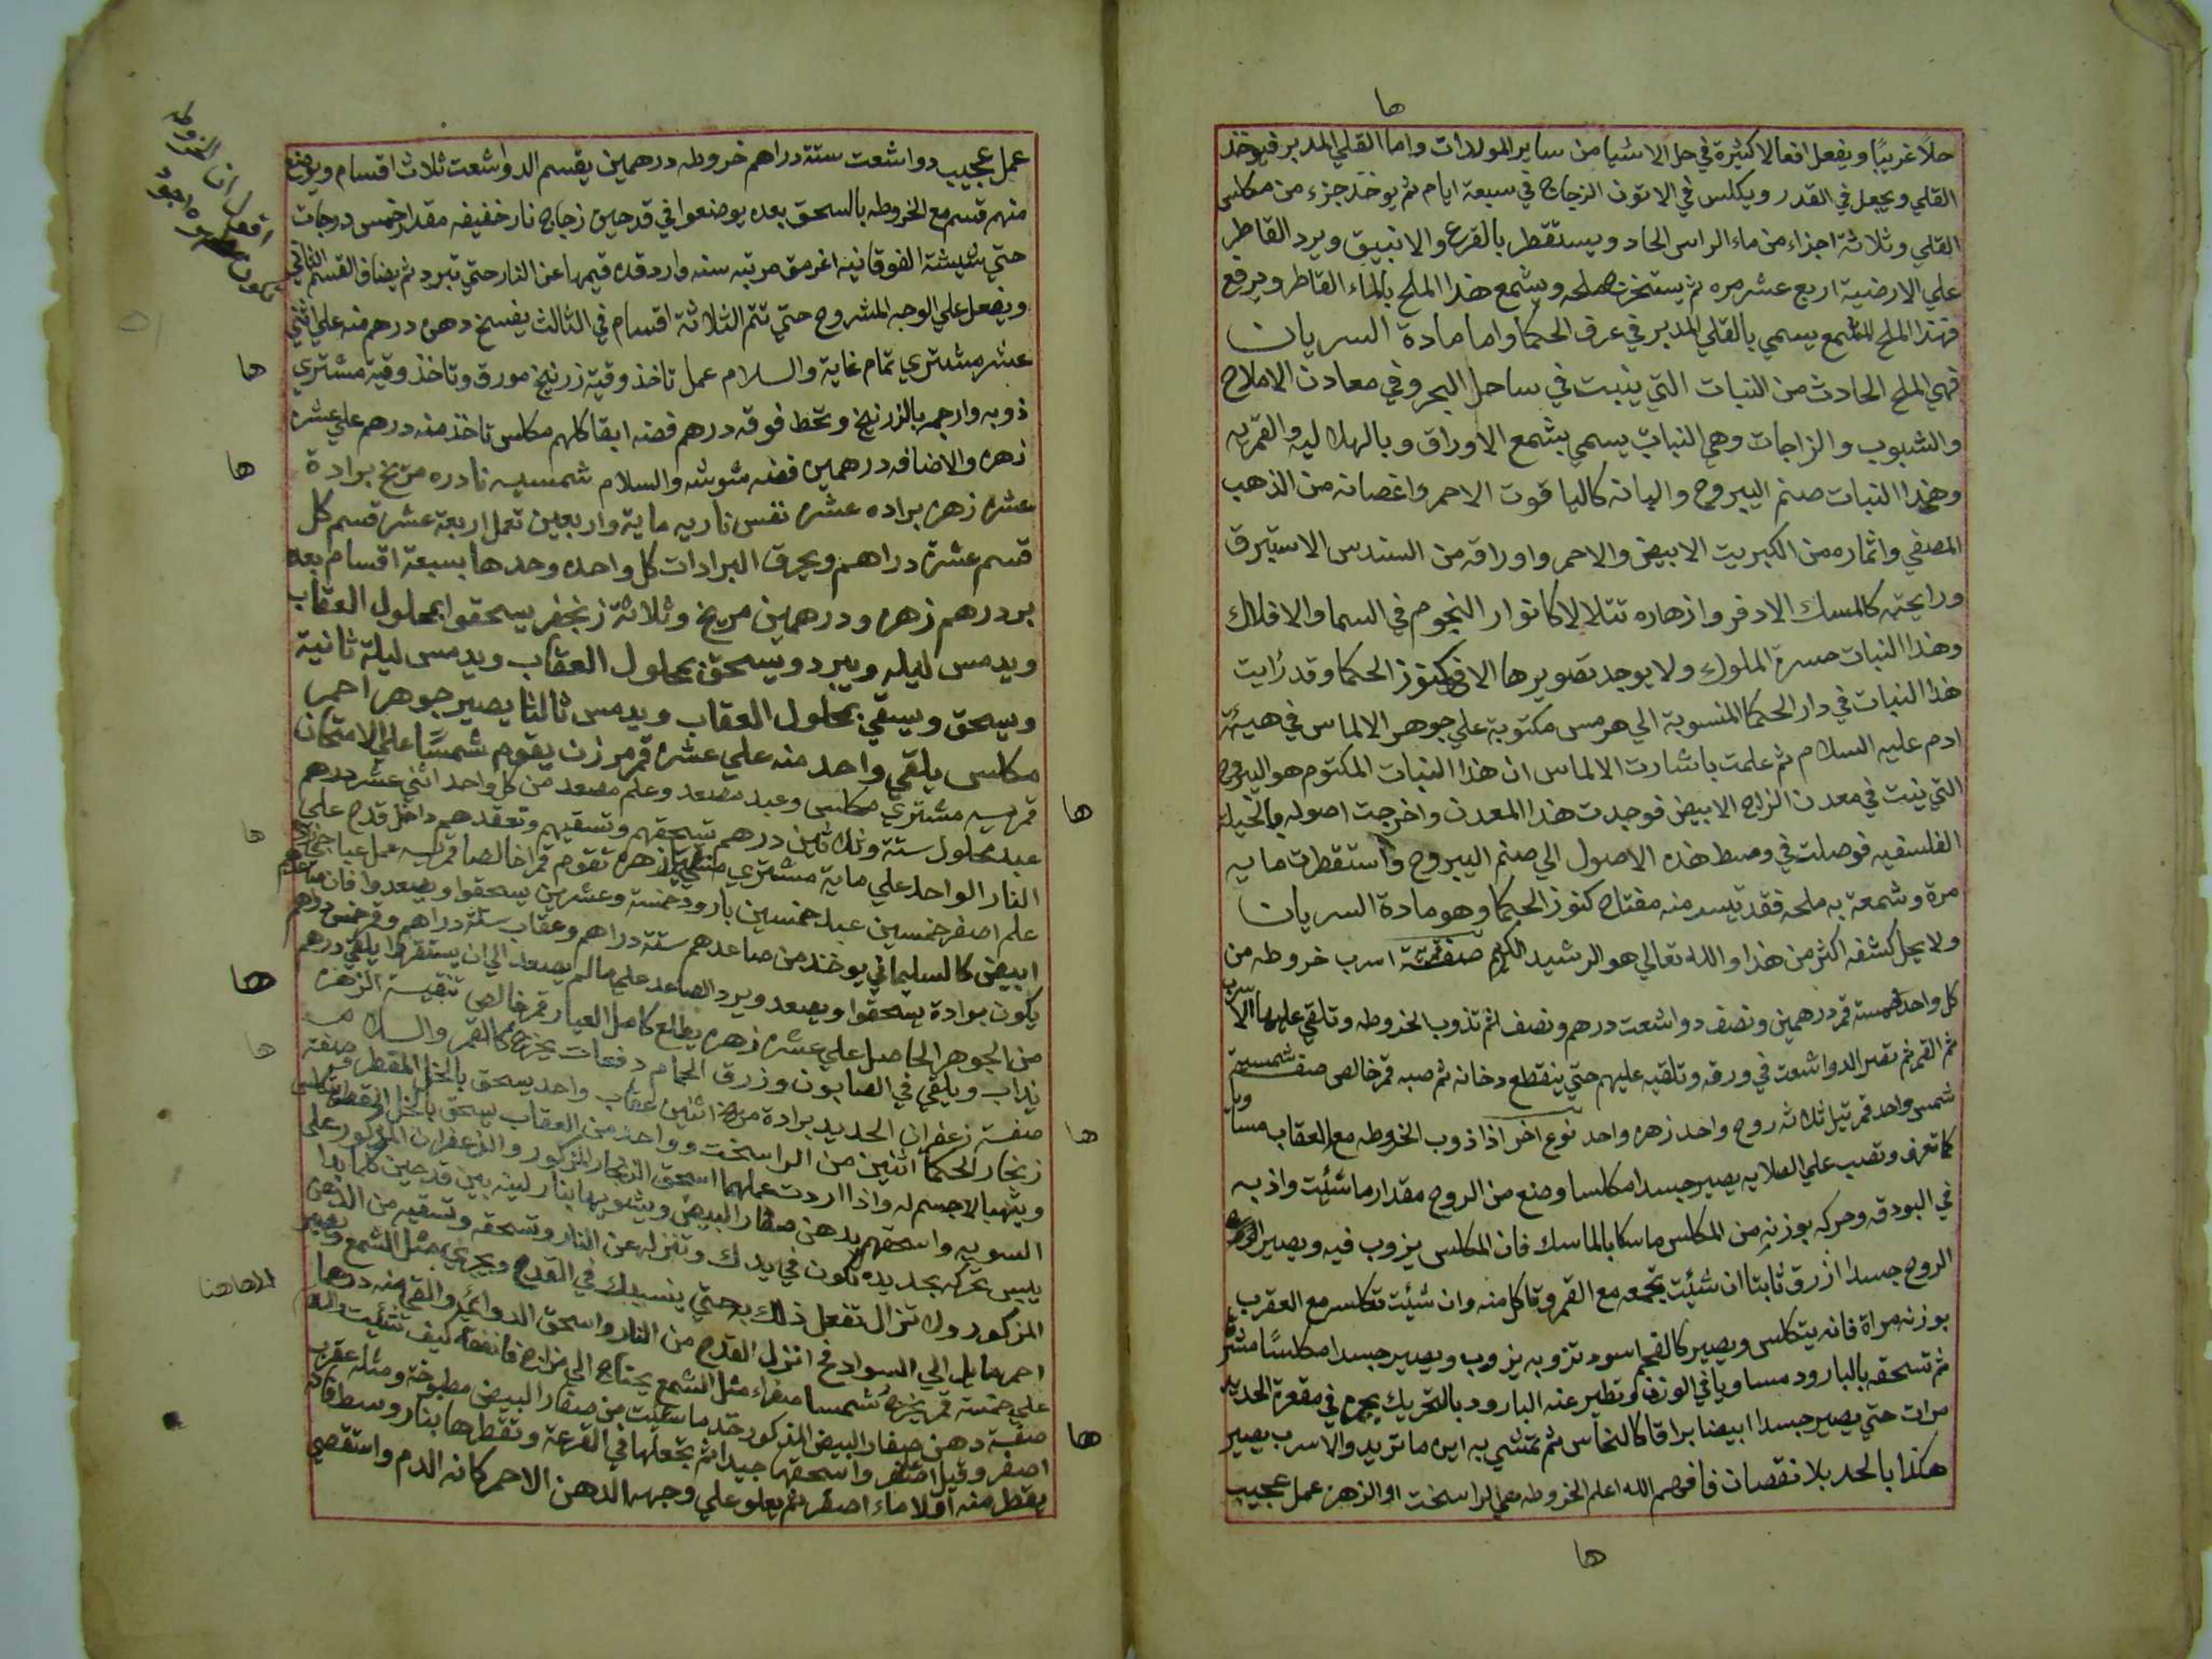 ها
حلاً غريبًا ويفعل افعالا كثيرة في حل الاشيا من ساير المولدات واما القلي المدبر فيوخذ
القلي ويجعل في القدر ويكلس في الاتون الزجاج في سبعة ايام ثم يوخذ جزء من مكلس
القلي وثلاثة اجزاء من ماء الراس الحاد ويستقطر بالقرع والانبيق ويرد القاطر
علي الارضية اربع عشر مره ثم يستخرج ملحه ويشمع هذا الملح بالماء القاطر ويرفع
فهذا الملح المشمع يسمي بالقلي المدبر في عرف الحكما واما مادة السريان
فهي الملح الحادث من النبات التي ينبت في ساحل البحر وفي معادن الاملاح
والشبوب والزاجات وهي النبات يسمي بشمع الاوراق وبالهلاليه والقمريه
وهذا النبات صنم اليبروح والبانه كالياقوت الاحمر واغصانه من الذهب
المصفي واثماره من الكبريت الابيض والاحمر واوراقه من السندس الاستبرق
ورايحته كالمسك الادفر وازهاره تتلالا كانوار النجوم في السما والافلاك
وهذا النبات مسرة الملوك ولا يوجد تصويرها الا في كنوز الحكما وقد رايت
هذا النبات في دار الحكما المنسوبة الي هرمس مكتوبة علي جوهر الالماس في هيئة
ادم عليه السلام ثم علمت باشارت الالماس ان هذا النبات المكتوم هو اليبروح
التي ينبت في معدن الزاج الابيض فوجدت هذا المعدن واخرجت اصوله بالحيلة
الفلسفيه فوصلت في وسط هذه الاصول الي صنم اليبروح واستقطرت مايه
مرة وشمعة به ملحه فقد تيسر منه مفتاح كنوز الحكما وهو مادة السريان
ولا يحل كشفه اكثر من هذا والله تعالي هو الرشيد الكريم صفة اسرب خروطه من
كل واحد خمسة قمر درهمين ونصف دواشعت درهم ونصف ثم تذوب الخروطه وتلقي عليها الاسرب
ثم القمر ثم تصر الدواشعت في ورقه وتلقيه عليهم حتي ينقطع دخانه ثم صبه قمر خالص صفة شمسية
شمس واحد قمر ثلاثه روح واحد زهره واحد نوع اخر اذا ذوب الخروطه مع العقاب مساويا
كما تعرف وتصب علي الصلايه يصير جسدا مكلسا وضع من الروح مقدار ما شئيت واذبه
في البودقه وحركه بوزنه من المكلس ماسكا بالماسك فان المكلس يذوب فيه ويصير
الروح جسدا ازرق ثابتا ان شئيت تجمعه مع القمر وتاكل منه وان شئيت تكلسه مع العقرب
بوزنه مراة فانه يتكلس ويصير كالفحم اسود تزوبه يزوب ويصير جسدا مكلسًا
ثم تسحقه بالبارود مساويا في الوزن وتطير عنه البارود بالتحريك في مقعرة الحديد
مرات حتي يصير جسدا ابيضا براقا كالنحاس ثم تمشي به اين ما تريد والاسرب يصير
هكذا بالحد بلا نقصان فافهم الله اعلم الخروطه الراسخت او الزهره عمل عجيب
ها
عمل عجيب دواشعت ستة دراهم خروطه درهمين يقسم الدواشعت ثلاث اقسام ويوضع
منهم قسم مع الخروطه بالسحق بعده يوضعوا في قدحين زجاج نار خفيفه مقدار خمس درجات
حتي الفوقانيه قيمها عن النار حتي تبرد ثم يضاف القسم الثاني
ويفعل علي الوجه المشروح حتي تتم الثلاثة اقسام في الثالث يفسخ دهن درهم منه علي اثني
عشر مشتري تمام غاية والسلام عمل تاخذ وقية زرنيخ مورق وتاخذ وقية مشتري
ذوبه وارجمه بالزرنيخ وتحط فوقه درهم فضه ابقا كلهم مكلس تاخذ منه درهم علي عشره
زهره والاضافه درهمين فضه شوشه والسلام شمسيه نادره مريخ برادة
عشره زهره براده عشره نفس ناريه ماية واربعين تعمل اربعة عشر قسم كل
قسم عشرة دراهم ويحرق البرادات كل واحده وحدها بسبعة اقسام بعده
درهم زهره ودرهمين مريخ وثلاثة زنجفر يسحقوا بمحلول العقاب
ويدمس ليله ويبرد وتسحق بمحلول العقاب ويدمس ليلة ثانية
ويسحق ويسقي بمحلول العقاب ويدمس ثالثا يصير جوهر احمر
مكلس يلقي واحد منه علي عشره قمر مرزن يقوم شمسًا علي الامتحان
قمريه مشتري مكلس وعبد مصعد وعلم مصعد من كل واحد اثني عشر درهم
عبد محلول ستة وثلاثين درهم تسحقهم وتسقيهم وتعقدهم داخل قدح علي
النار الواحد علي ماية مشتري زهره تقوم قمرا خالصا قمريه عمل
علم اصفر خمسين عبد خمسين بارود خمسة وعشرين يسحقوا ويصعدوا فان
ابيض كالسليماني يوخذ من صاعدهم ستة دراهم وعقاب ستة دراهم وقمر خمس دراهم
يكون برادة يسحقوا ويصعد ويرد الصاعد علي ما لم يصعد الي ان يستقروا يلقي درهم
من الجوهر الحاصل علي عشره زهره يطلع كامل العيار قمر خالص تنقية الزهره
يذاب ويلقي في الصابون وزرق الحمام دفعات يخرج كالقمر والسلام
صفة زعفران الحديد برادة مريخ اثنين عقاب واحد يسحق بالخل المقطر وصفة
زنجار الحكما اثنين من الراسخت وواحد من العقاب يسحق بالخل
واذا اردت عملها اسحق الزنجار المذكور والزعفران المذكور علي
السويه واسحقهم بدهن صفار البيض ويشويها بنار لينه بين قدحين كلما بدا
يبس تحركه بحديده تكون في يدك وتنزله عن النار وتسحقه وتسقيه من الدهن
المذكور ولا تزال تفعل ذلك به حتي ينسبك في القدح ويجري مثل الشمع ويصير
احمر مايل الي السواد انزل القدح من النار واسحق الدوا والق منه درهما
علي خمسة قمر يخرج شمسا صفراء مثل الشمع يحتاج الي كيف شئيت
صفة دهن صفار البيض المذكور خذ ما شئيت من صفار البيض مطبوخة ومثله عقرب
اصفر واسحقها جيدا ثم تجعلها في القرعة وتقطرها بنار وسط
يقطر منه اولا ماء اصفر ثم يعلو علي وجهه الدهن الاحمر كانه الدم واستقصي
ها
ها
ها
ها
ها
ها
ها
ها
ها